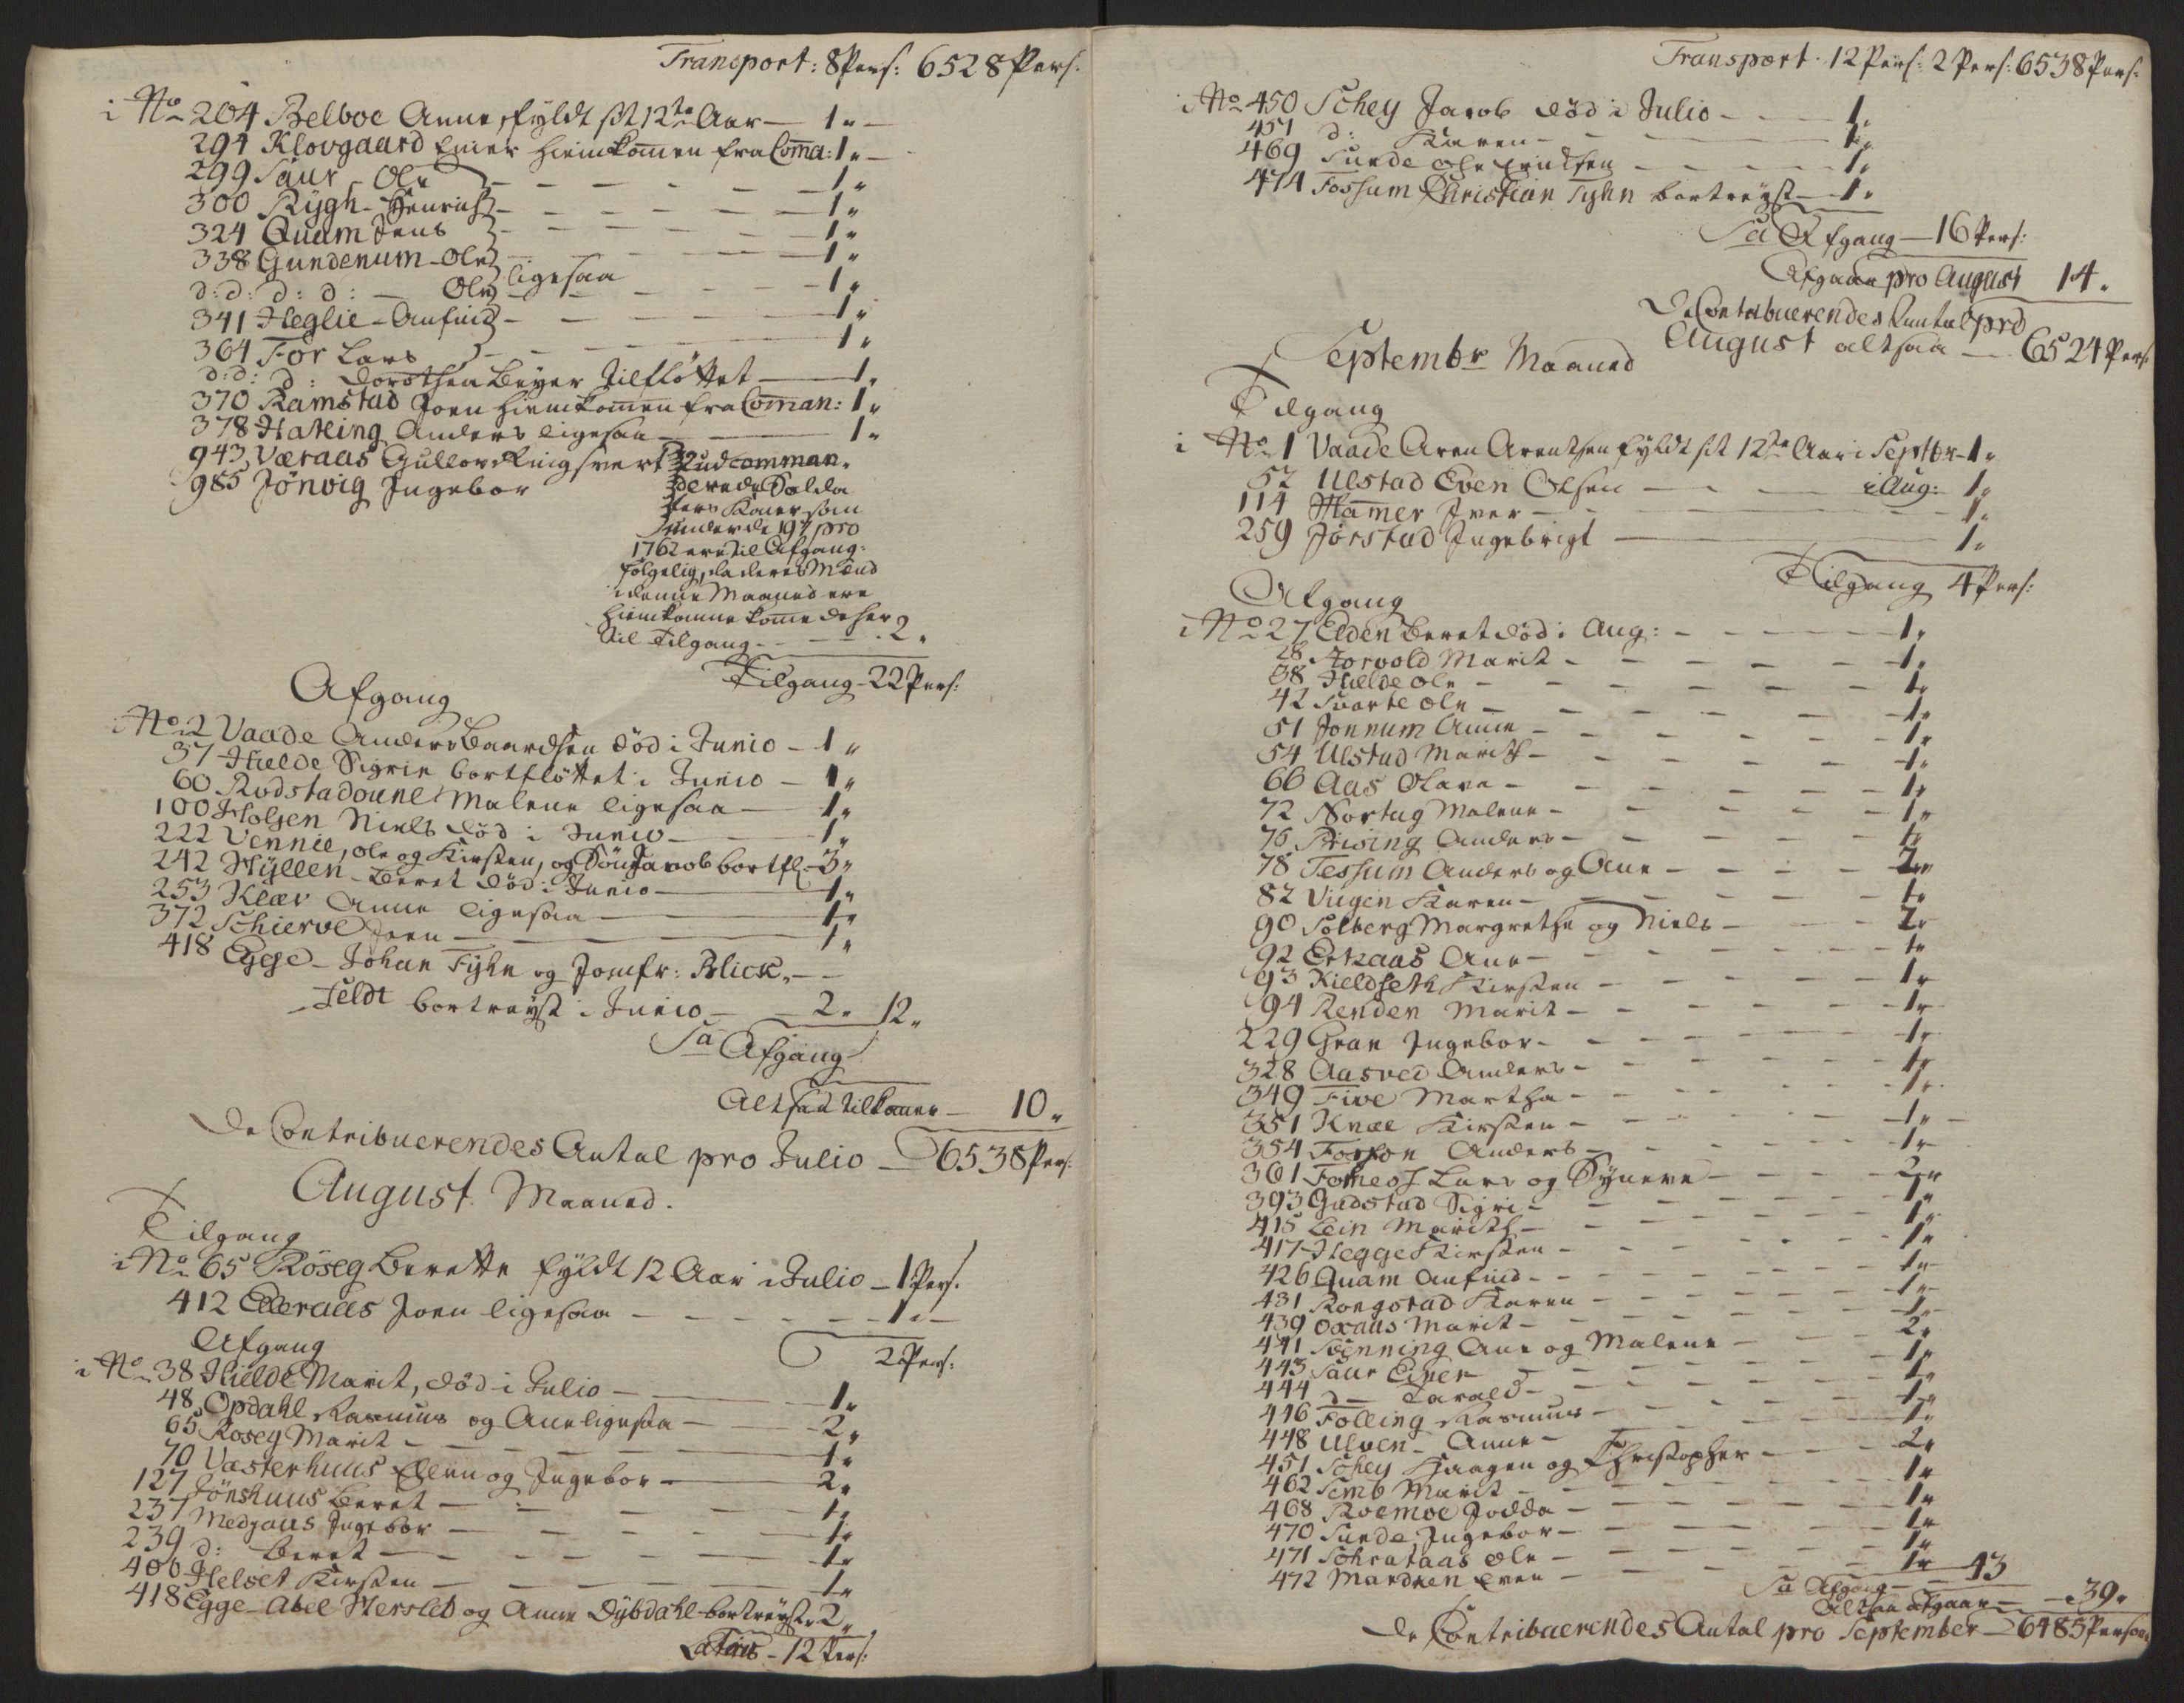 Transport: 8 Pers: 6528 Pers:
i No 204 Belboe Anne, fyldt sit 12te Aar — 1 „
294 Klovgaard Einer hiemkom̅en fra Com̅a: 1 „
299 Saur - Ole — 1 „
300 Rygh - Henrich — 1 „
324 Quam Jens — 1 „
338 Gundenum - Ole — 1 „
d: d: d: d: — Ole ligesaa — 1 „
341 Heglie - Anfind — 1 „
364 For Lars — 1 „
d: d: d: Dorothea Beyer tilfløttet — 1 „
370 Ramstad Joen hiemkom̅en fra Com̅an: 1 „
378 Hatling Anders ligesaa — 1 „
943 Væraas Gullov Ringsvert 2 udcomman„
985 Jönvig Ingebor derede Solda
ters Koner som
under de 197 pro
1762 ere til Afgang:
følgelig, da deres Mænd
i denne Maaned ere
hiemkomne kom̅e de her
til Tilgang — 2 „
Tilgang - 22 Pers:
Afgang
i No 2 Vaade Anders Baardsen död i Junio — 1 „
37 Hielde Sigrie bortfløttet i Junio — 1 „
60 Rodstadoune Malene ligesaa — 1 „
100 Holsen Niels död i Junio — 1 „
222 Vennie, Ole og Kirsten, og Søn Jacob bortfl: 3 „
242 Hyllen - Beret död i Junio — 1 „
253 Klær Anne ligesaa — 1 „
372 Schierve Joen — 1 „
418 Egge - Johan Fyhn og Jomfr: Blick„
feldt bortreyst i Junio — 2 „ 12 „
Sa Afgang
Altsaa tilkomne — 10 „
De Contribuerendes Antal pro Julio — 6538 Pers:
August Maaned.
Tilgang
i No 65 Röseg Berette fyldt 12 Aar i Julio — 1 Pers.
412 Elleraas Joen ligesaa — 1 „
2 Pers:
Afgang
i No 38 Hielde Marit, död i Julio — 1 „
48 Opdahl Rasmus og Ane ligesaa — 2 „
65 Roseg Marit — 1 „
70 Væsterhuus Elen og Ingebor — 2 „
127 Jönshuus Beret — 1 „
237 Medjaas Ingebor — 1 „
239 d: Beret — 1 „
400 Helset Kirsten — 1 „
418 Egge - Abel Hersleb og Anne Dybdahl bortreyst 2 „
Latus - 12 Pers:
Transport. 12 Pers: 2 Pers: 6538 Pers:
i No 450 Schey Jacob död i Julio — 1 „
451 d: Karen — 1 „
469 Sunde Ole Erichsen — 1 „
474 Fossum Christian Fyhn bortreyst — 1 „
Sa Afgang — 16 Pers:
Afgaar pro August 14 „
De Contribuerendes Antal pro
August altsaa — 6524 Pers:
Septembr Maaned
Tilgang
i No 1 Vaade Aren Arentsen fyldt sit 12te Aar i Septbr 1 „
52 Ulstad Even Olsen — i Aug: 1 „
114 Ham̅er Iver — 1 „
259 Jörstad Ingebrigt — 1 „
Tilgang 4 Pers:
Afgang
i No 27 Elden Beret död i Aug: — 1 „
28 Horvold Marit — 1 „
38 Hielde Ole — 1 „
42 Svarte Ole — 1 „
51 Jonnum Anne — 1 „
54 Ulstad Marith — 1 „
66 Aas Olava — 1 „
72 Nortug Malene — 1 „
76 Rising Anders — 1 „
78 Tessum Anders og Ane — 2 „
82 Viigen Karen — 1 „
90 Solberg Margrethe og Niels — 2 „
92 Erkaas Ane — 1 „
93 Kieldseth Kirsten — 1 „
94 Renden Marit — 1 „
229 Gran Ingebor — 1 „
328 Aasved Anders — 1 „
349 Five Martha — 1 „
351 Knæe Kirsten — 1 „
354 Forfon Anders — 1 „
361 Fornes Lars og Synneve — 2 „
393 Gudstad Sigri — 1 „
415 Lein Marith — 1 „
417 Hegge Kirsten — 1 „
426 Quam Anfind — 1 „
431 Rongstad Karen — 1 „
439 Oxaas Marit — 1 „
441 Svenning Ane og Malene — 2 „
443 Saur Einer — 1 „
444 d — Tarald — 1 „
446 Folling Rasmus — 1 „
448 Ulven - Anne — 1 „
451 Schey Haagen og Christopher — 2 „
462 Semb Marit — 1 „
468 Roemoe Jodda — 1 „
470 Sunde, Ingebor — 1 „
471 Schrataas Ole — 1 „
472 Mandken Even — 1 „ 43
Sa Afgang
Altsaa afgaar — 39 „
De Contribuerendes Antal pro September — 6485 Person